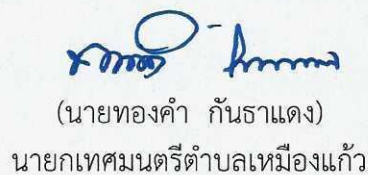 (นายทองคำ กันธาแดง)
นายกเทศมนตรีตำบลเหมืองแก้ว